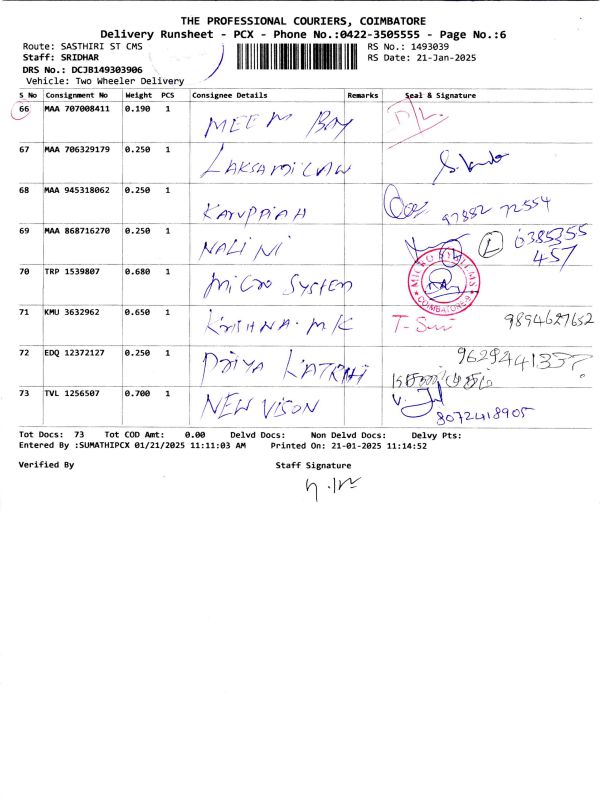 THE PROFESSIONAL COURIERS, COIMBATORE
Delivery Runsheet - PCX - Phone No.:0422-3505555 - Page No.:6
Route: SASTHIRI ST CMS RS No.: 1493039
Staff: SRIDHAR RS Date: 21-Jan-2025
DRS No.: DCJB149303906
Vehicle: Two Wheeler Delivery
S_No Consignment No Weight PCS Consignee Details Remarks Seal & Signature
66 MAA 707008411 0.190 1 MEEM BAY D/L.
67 MAA 706329179 0.250 1
68 MAA 945318062 0.250 1 KARUPPIAH 97882 72554
69 MAA 868716270 0.250 1 NALINI L 6385355
457
70 TRP 1539807 0.680 1 MICRO SYSTEM MICRO SYSTEMS COIMBATORE-9
71 KMU 3632962 0.650 1 KRISHNA. M/K 9894627652
72 EDQ 12372127 0.250 1 PRIYA
73 TVL 1256507 0.700 1 NEW VISON 8072418905
Tot Docs: 73 Tot COD Amt: 0.00 Delvd Docs: Non Delvd Docs: Delvy Pts:
Entered By :SUMATHIPCX 01/21/2025 11:11:03 AM Printed On: 21-01-2025 11:14:52
Verified By Staff Signature